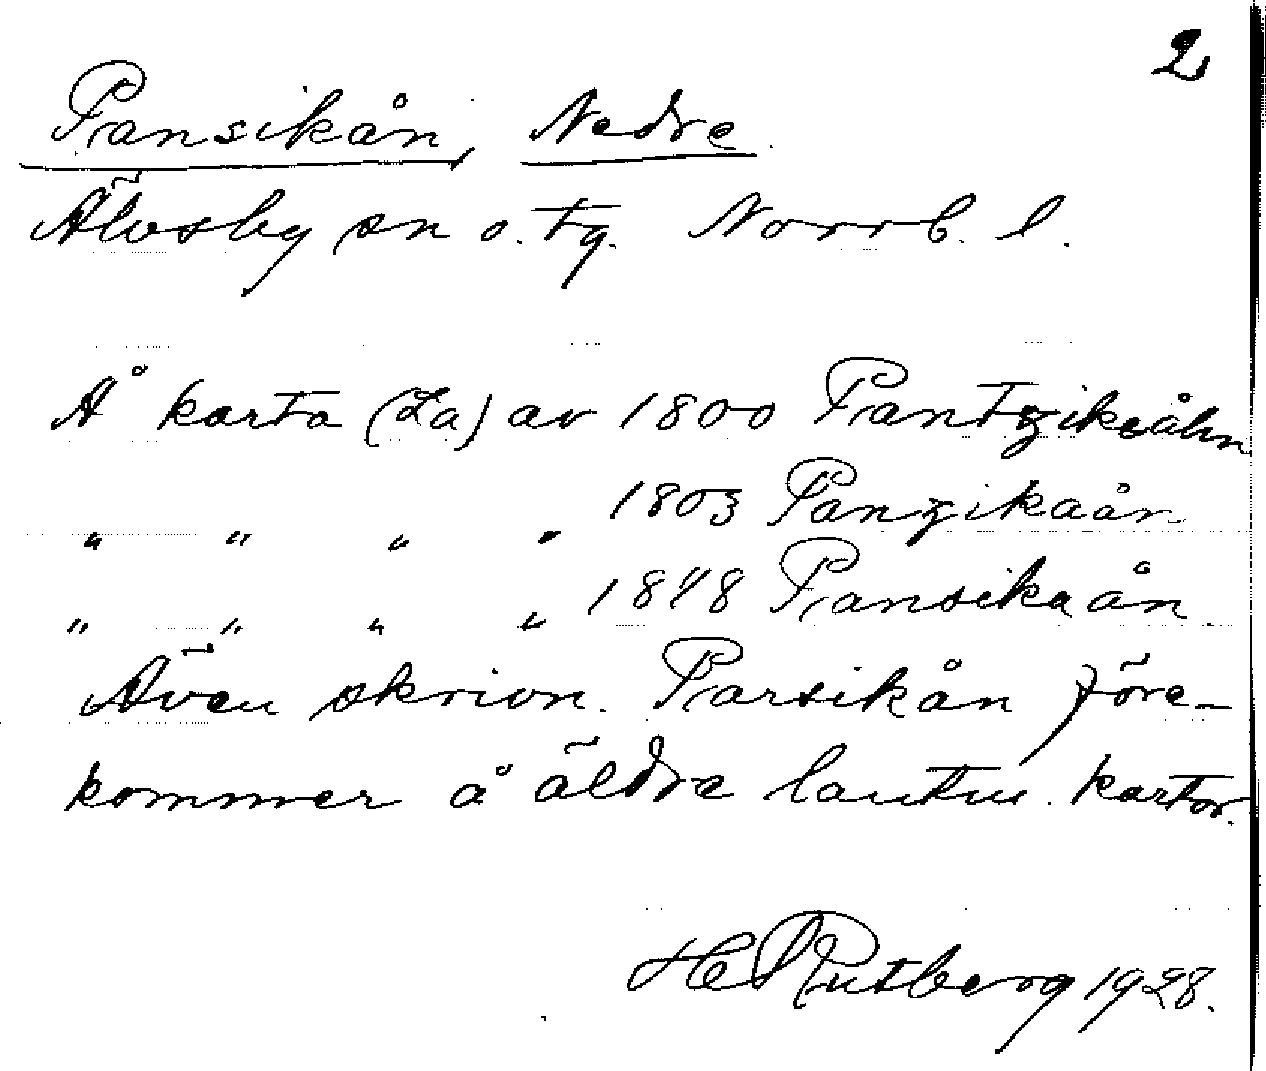 2
Pansikån, Nedre
Älvsby sn o. tg. Norrb. l.
Å karta (La) av 1800 Pantzikeåhn
" " " " 1803 Panzikaån
" " " " 1848 Pansikaån
Även skrivn. Parsikån före-
kommer å äldre lantm. kartor.
H Rutberg 1928.